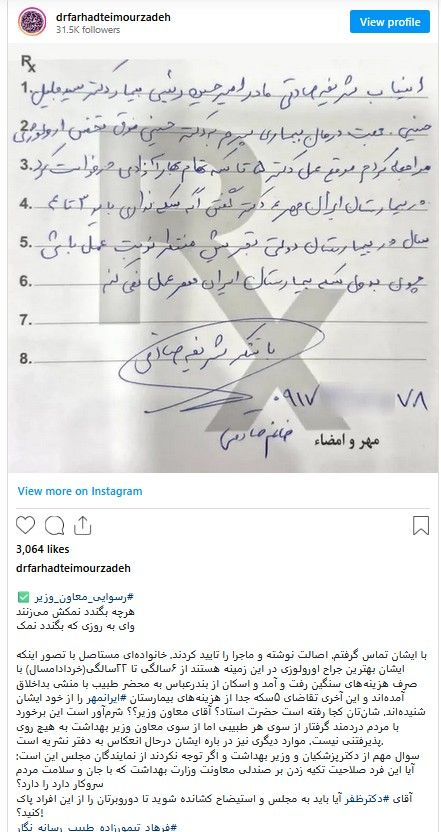 drfarhadteimourzadeh
31.5K followers
View profile
Rx
1. اینجانب شریفه صادقی مادر امیرحسین رئیسی بیمار دکتر سیدجلیل
2. حسینی جهت درمان بیماری پسرم به دکتر حسینی فوق تخصص ارولوژی
3. مراجعه کردم موقع عمل دکتر ۵ تا سکه تمام بهار آزادی درخواست کرد
4. در بیمارستان ایران مهر، دکتر گفتن اگه سکه نداری باید ۳ تا ۴
5. سال در بیمارستان دولتی تجریش منتظر نوبت عمل باشی
6. چون بدون سکه بیمارستان ایران مهر عمل نمی کنم
7.
8.
با تشکر شریفه صادقی
۰۹۱۷ ۷۸
خانم صادقی
مهر و امضاء
View more on Instagram
3,064 likes
drfarhadteimourzadeh
✅ #رسوایی_معاون_وزیر
هرچه بگندد نمکش می‌زنند
وای به روزی که بگندد نمک
با ایشان تماس گرفتم. اصالت نوشته و ماجرا را تایید کردند. خانواده‌ای مستاصل با تصور اینکه
ایشان بهترین جراح اورولوزی در این زمینه هستند از ۶سالگی تا ۲۲سالگی(خردادامسال) با
صرف هزینه‌های سنگین رفت و آمد و اسکان از بندرعباس به محضر طبیب با منشی بداخلاق
آمده‌اند و این آخری تقاضای ۵سکه جدا از هزینه‌های بیمارستان #ایرانمهر را از خود ایشان
شنیده‌اند. شان‌تان کجا رفته است حضرت استاد؟ آقای معاون وزیر؟؟ شرم‌آور است این برخورد
با مردم دردمند گرفتار از سوی هر طبیبی اما از سوی معاون وزیر بهداشت به هیچ روی
پذیرفتنی نیست. موارد دیگری نیز در باره ایشان درحال انعکاس به دفتر نشریه است.
سوال مهم از دکترپزشکیان و وزیر بهداشت و اگر توجه نکردند از نمایندگان مجلس این است؛
آیا این فرد صلاحیت تکیه زدن بر صندلی معاونت وزارت بهداشت که با جان و سلامت مردم
سروکار دارد را دارد؟
آقای #دکترظفر آیا باید به مجلس و استیضاح کشانده شوید تا دوروبرتان را از این افراد پاک
کنید؟!
#فرهاد_تیمورزاده_طبیب_رسانه_نگار